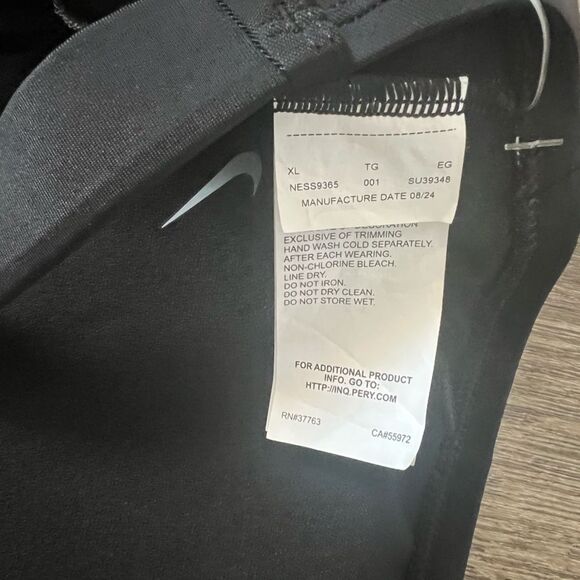 XL TG EG
NESS9365 001 SU39348
MANUFACTURE DATE 08/24
EXCLUSIVE OF TRIMMING
HAND WASH COLD SEPARATELY.
AFTER EACH WEARING.
NON-CHLORINE BLEACH.
LINE DRY.
DO NOT IRON.
DO NOT DRY CLEAN.
DO NOT STORE WET.
FOR ADDITIONAL PRODUCT
INFO. GO TO:
HTTP://INQ.PERY.COM
RN#37763 CA#55972